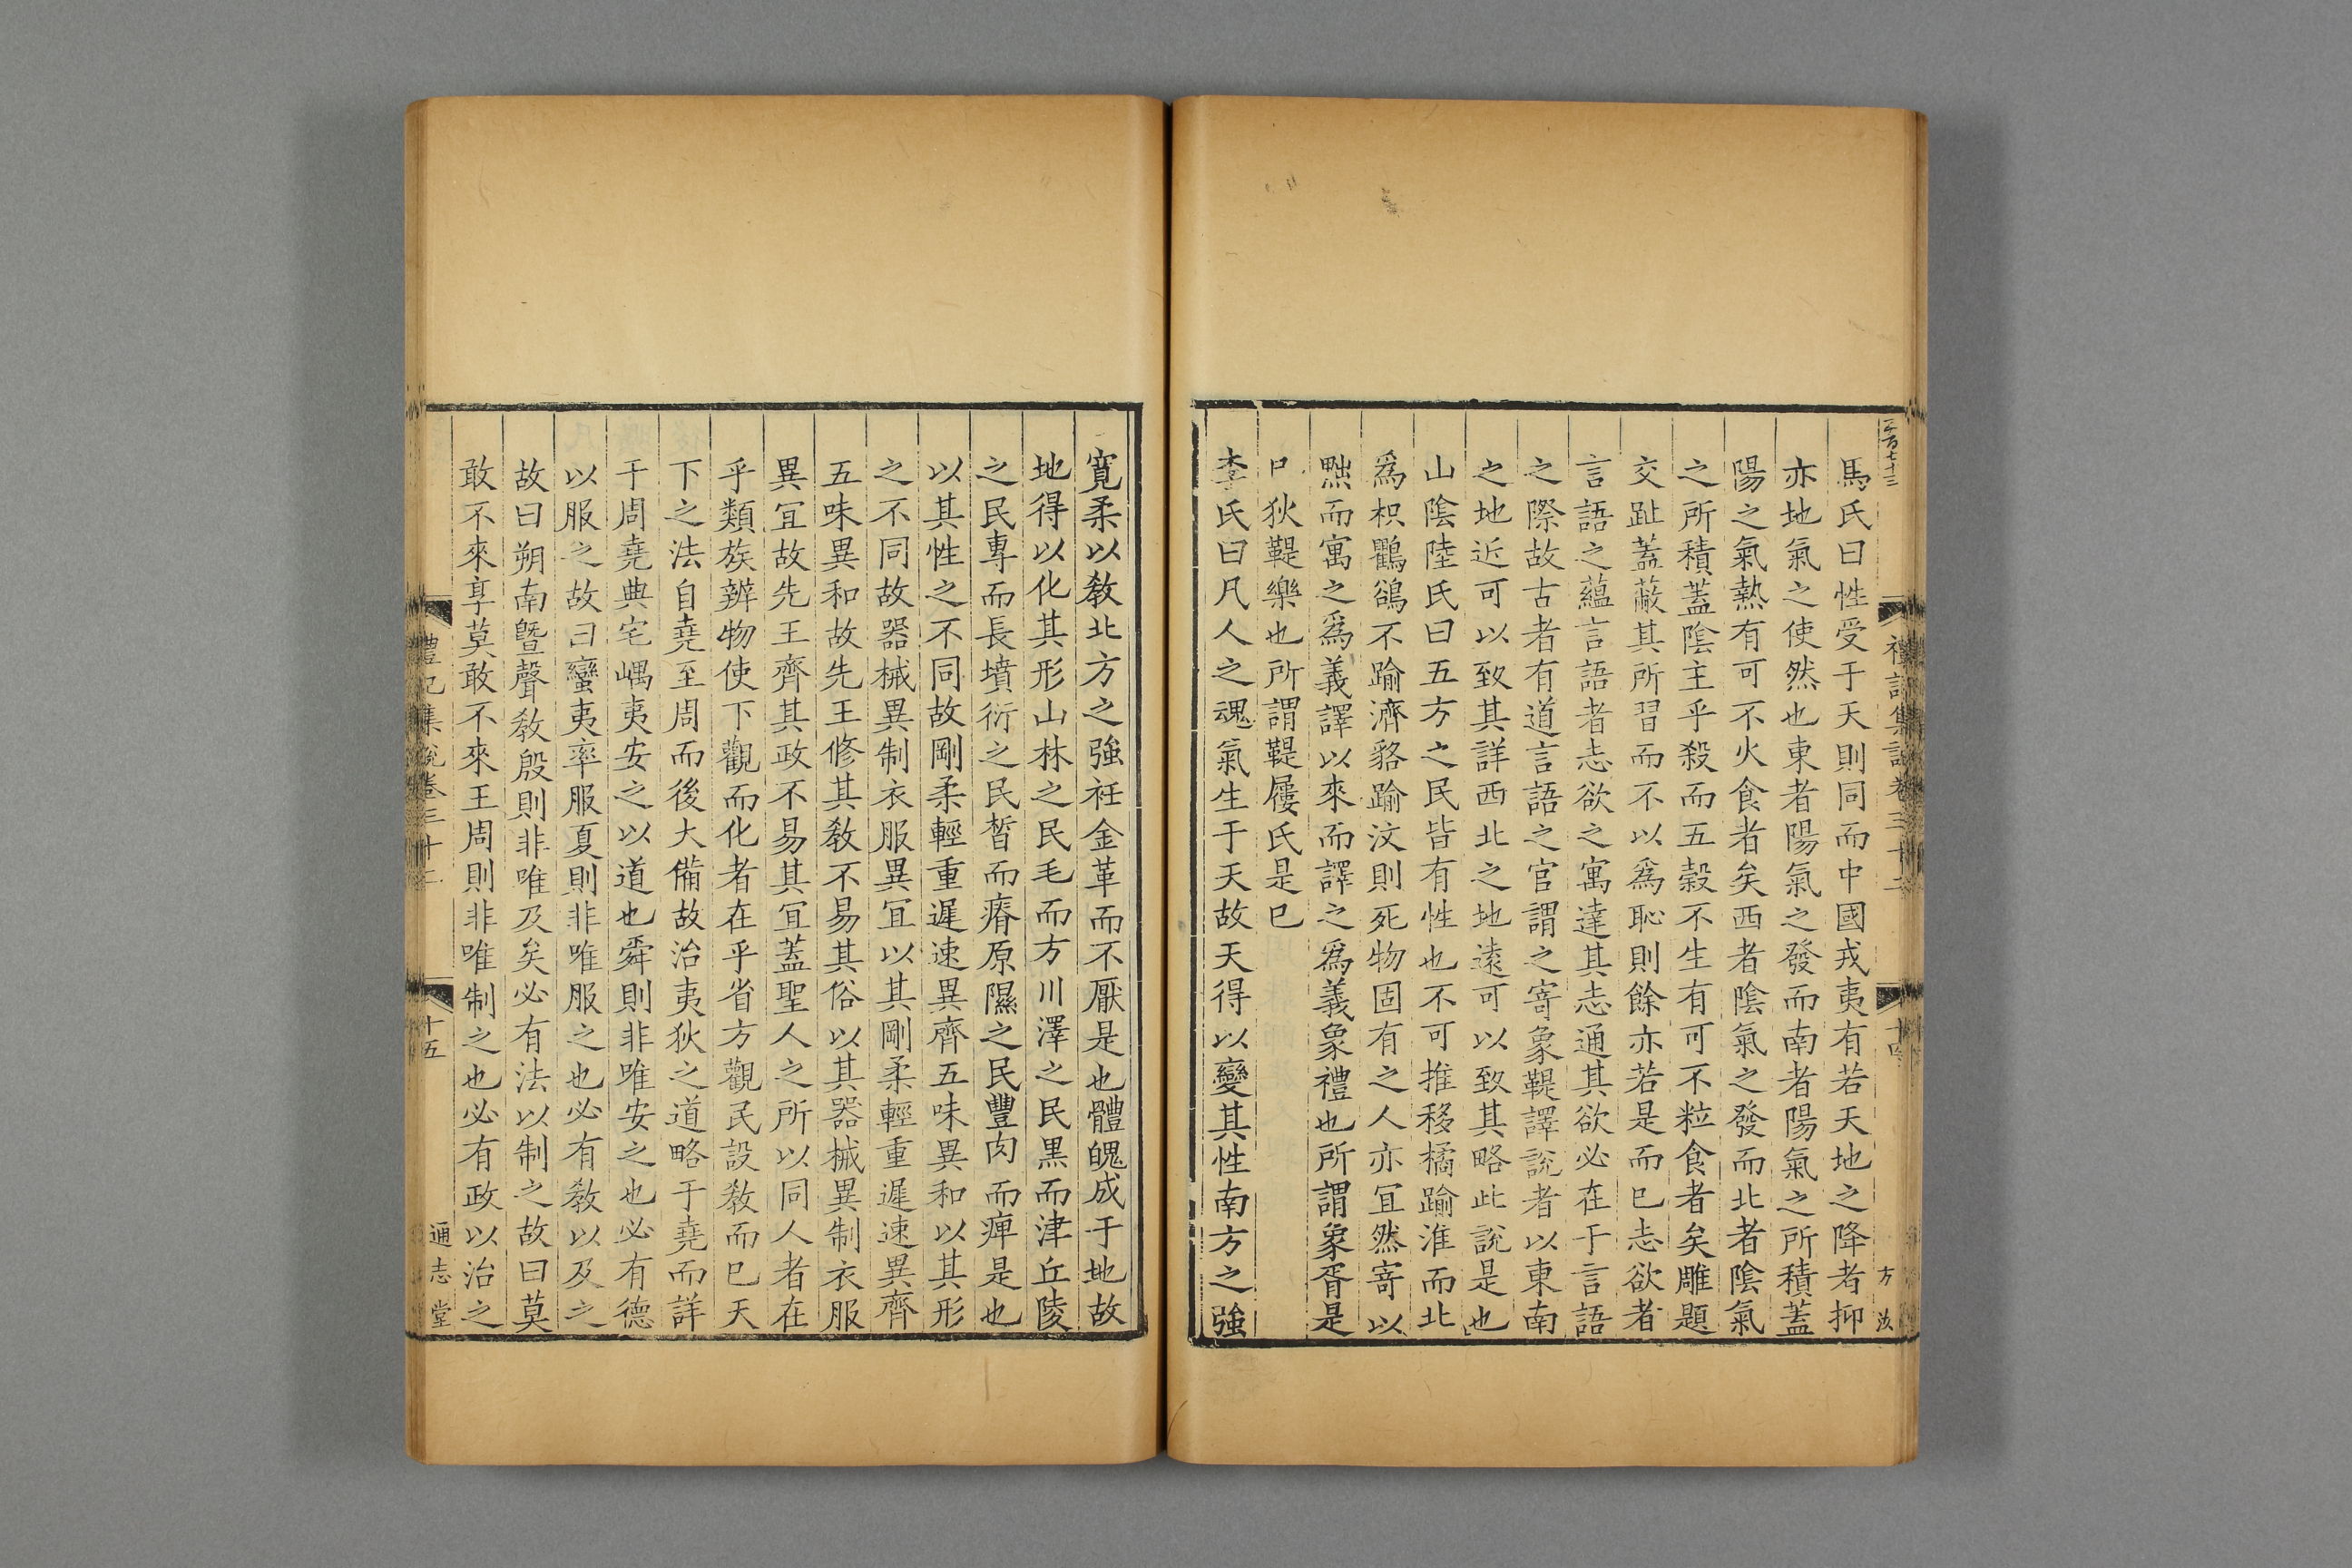 馬氏曰性受于天則同而中國戎夷有若天地之降者抑
亦地氣之使然也東者陽氣之發而南者陽氣之所積蓋
陽之氣熱有可不火食者矣西者陰氣之發而北者陰氣
之所積蓋陰主乎殺而五穀不生有可不粒食者矣雕題
交趾蓋蔽其所習而不以爲恥則餘亦若是而已志欲者
言語之蘊言語者志欲之寓達其志通其欲必在于言語
之際故古者有道言語之官謂之寄象鞮譯說者以東南
之地近可以致其詳西北之地遠可以致其略此說是也
山陰陸氏曰五方之民皆有性也不可推移橘踰淮而北
爲枳鸜鵒不踰濟貉踰汶則死物固有之人亦宜然寄以
黙而寓之爲義譯以來而譯之爲義象禮也所謂象胥是
狄鞮樂也所謂鞮屨氏是已
李氏曰凡人之魂氣生于天故天得以變其性南方之強
寬柔以教北方之強衽金革而不厭是也體魄成于地故
地得以化其形山林之民毛而方川澤之民黑而津丘陵
之民專而長墳衍之民晳而瘠原隰之民豐肉而痺是也
以其性之不同故剛柔輕重遲速異齊五味異和以其形
之不同故器械異制衣服異宜以其剛柔輕重遲速異齊
五味異和故先王修其教不易其俗以其器械異制衣服
異宜故先王齊其政不易其宜蓋聖人之所以同人者在
乎類族辨物使下觀而化者在乎省方觀民設教而已天
下之法自堯至周而後大備故治夷狄之道略于堯而詳
于周堯典宅嵎夷安之以道也舜則非唯安之也必有德
以服之故曰蠻夷率服夏則非唯服之也必有教以及之
故曰朔南曁聲教殷則非唯及矣必有法以制之故曰莫
敢不來享莫敢不來王周則非唯制之也必有政以治之
禮記集說卷三十二
十五
通志堂